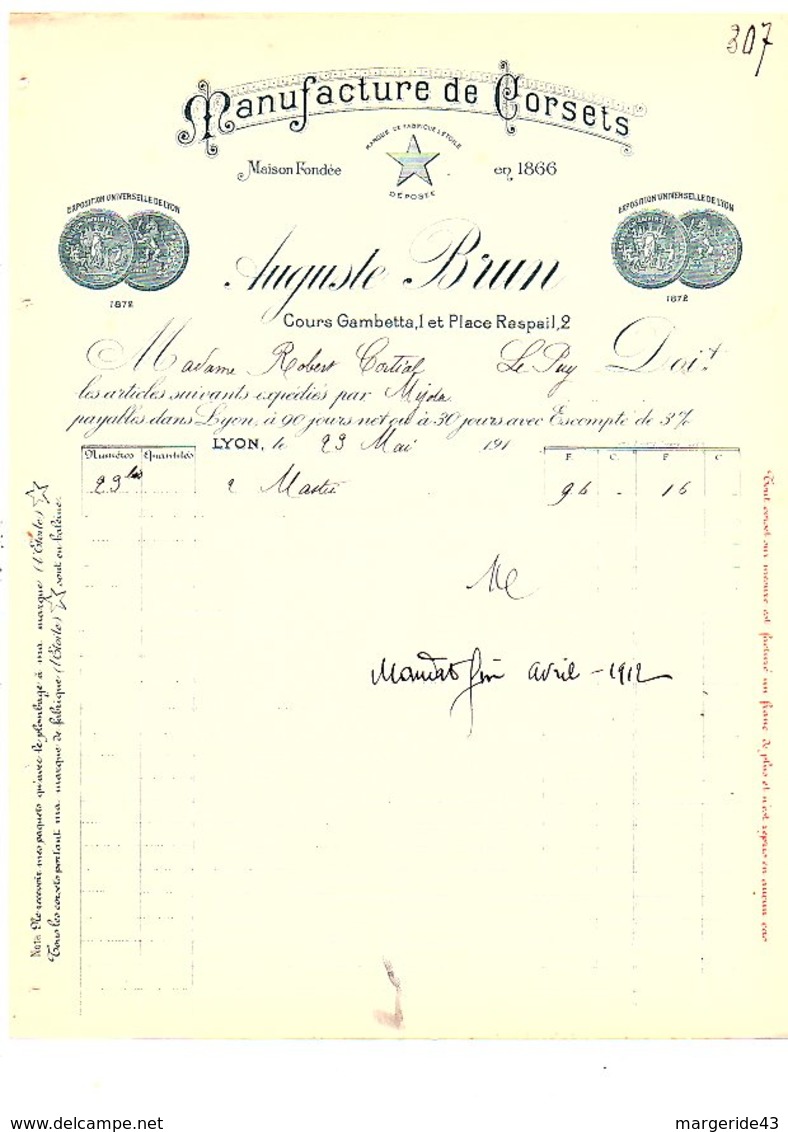 307
Manufacture de Corsets
MARQUE DE FABRIQUE L'ETOILE
Maison Fondée en 1866
DÉPOSÉE
EXPOSITION UNIVERSELLE DE LYON
1872
EXPOSITION UNIVERSELLE DE LYON
1872
Auguste Brun
Cours Gambetta, 1 et Place Raspail, 2
Madame Robert Cortial Le Puy Doit
les articles suivants expédiés par
payables dans Lyon, à 90 jours net ou à 30 jours avec Escompte de 3%
LYON, le 23 Mai 191
Numéros Quantités F. C. F. C.
2
Mandat fin avril - 1912
Nota Ne recevoir mes paquets qu'avec le plombage à ma marque (l'Etoile)
Tous les corsets portant ma marque de fabrique (l'Etoile) sont en baleine.
Tout corset sur mesure est facturé un franc de plus et n'est repris en aucun cas
www.delcampe.net
margeride43